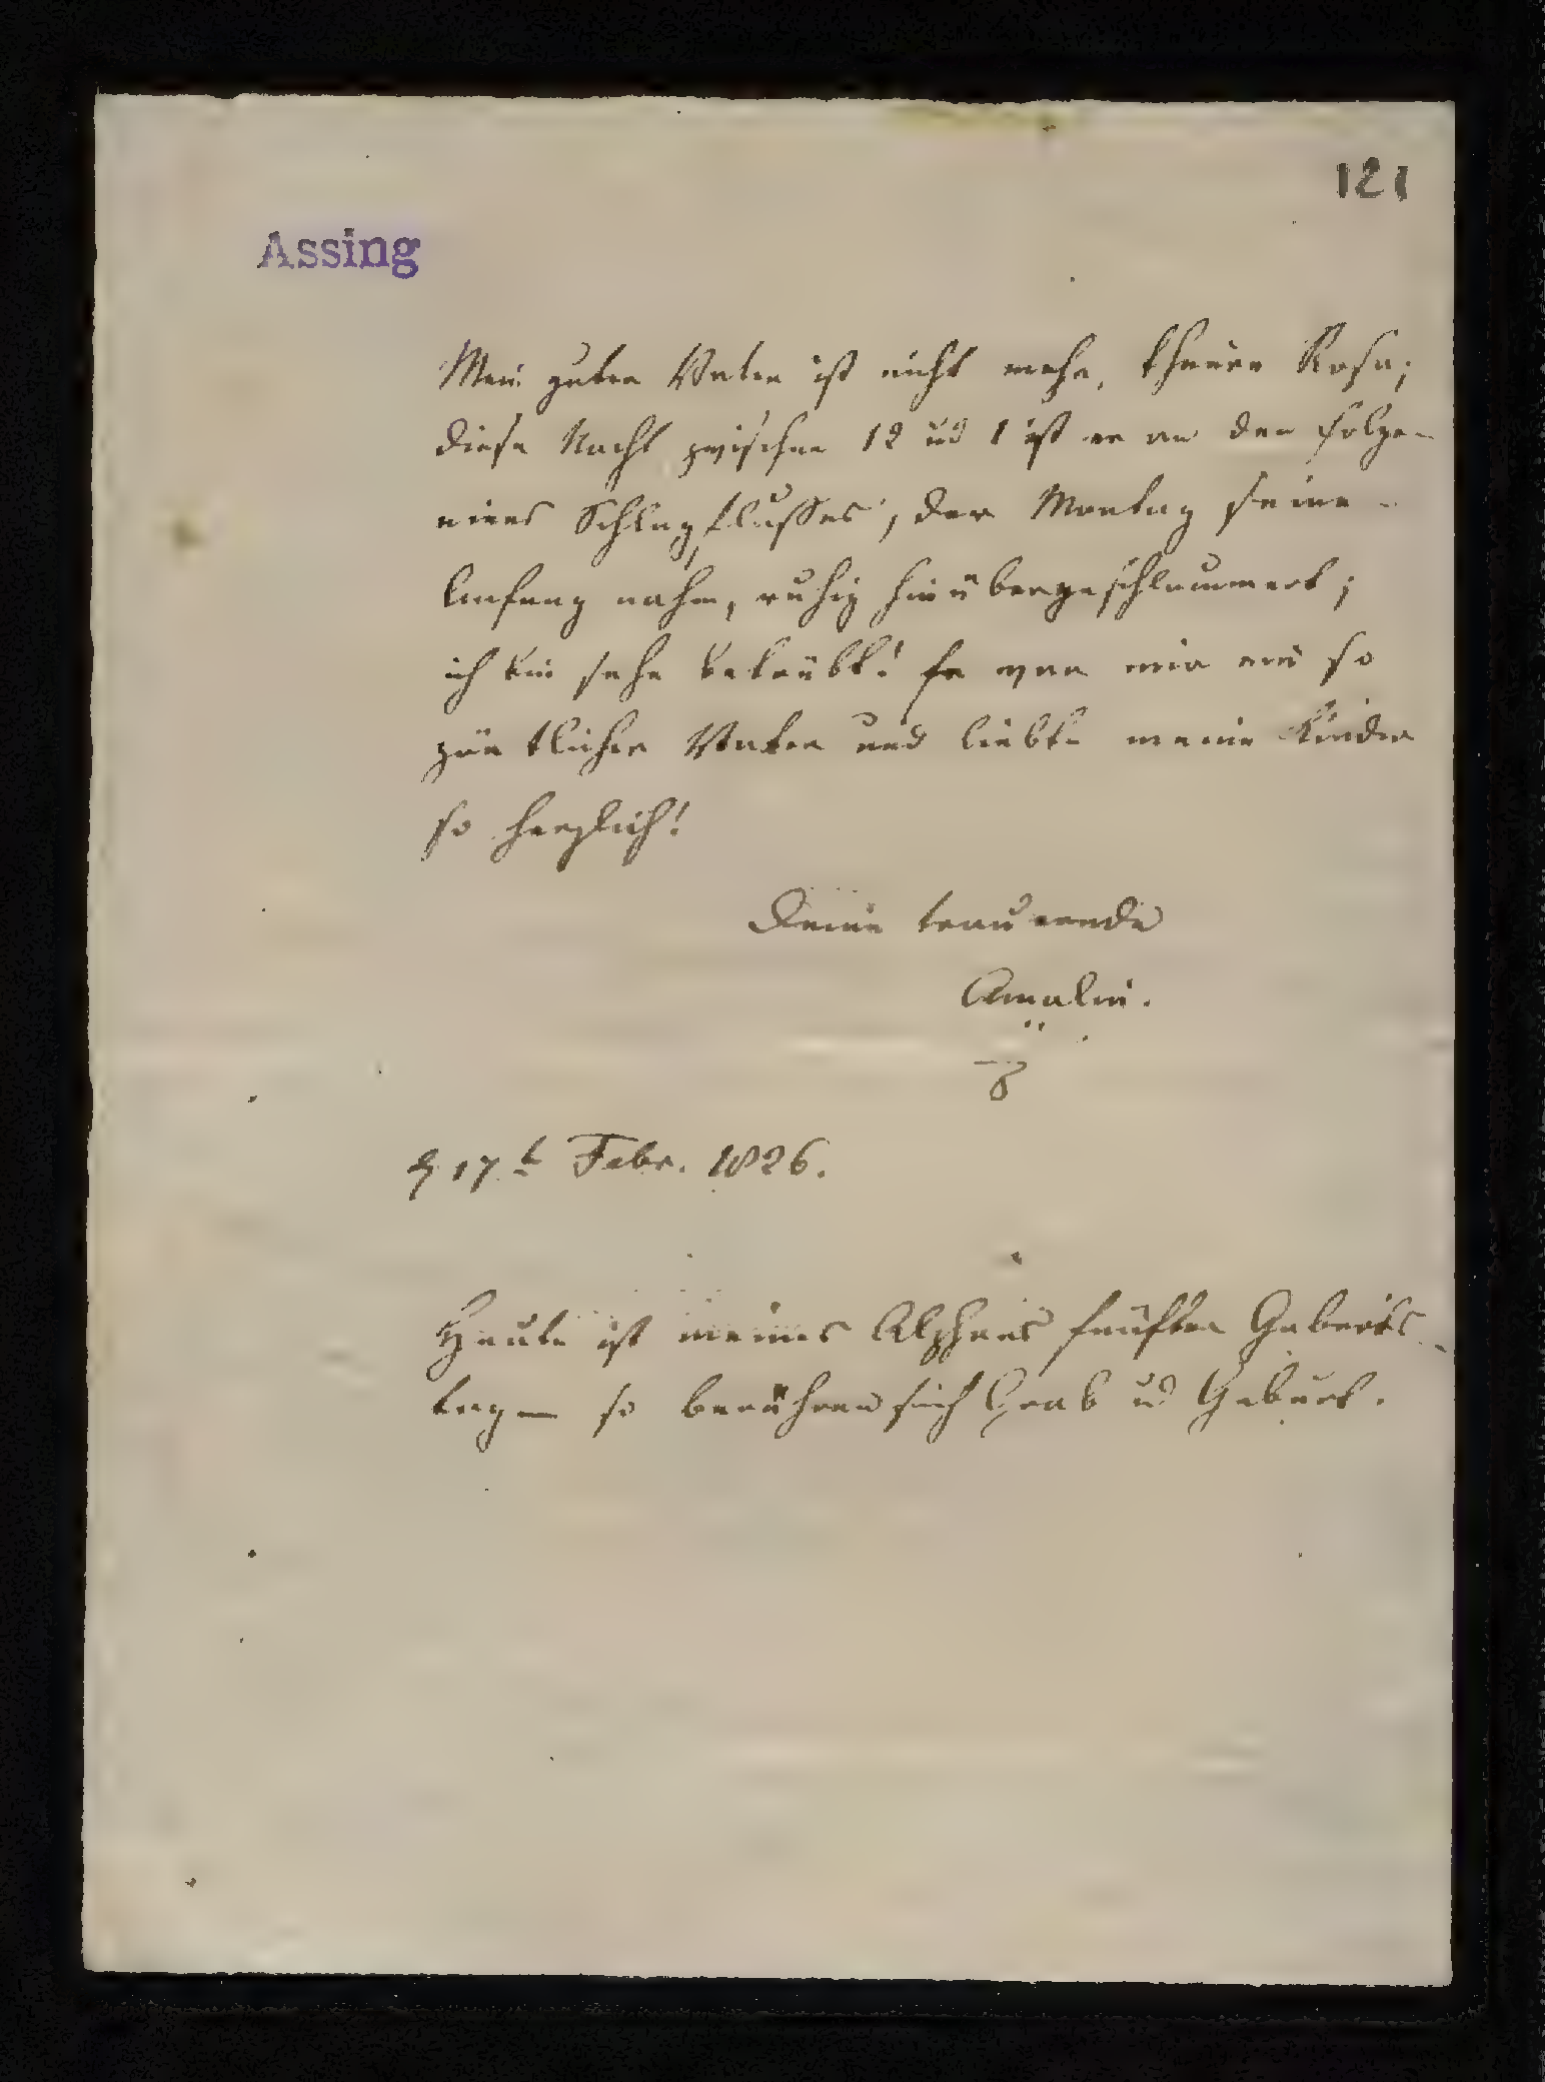 121
Assing
Mein guter Vater ist nicht mehr, theure Rosa;
diese Nacht zwischen 12 und 1 ist er an den Folgen
eines Schlagflusses, der Montag seinen
Anfang nahm, ruhig hinübergeschlummert;
ich bin sehr betrübt! Er war mir ein so
zärtlicher Vater und liebte meine Kinder
so herzlich!
Deine trauernde
Amalie.
17t Febr. 1826.
Heute ist meines Alphons fünfter Geburts
tag — so berühren sich Grab und Geburt.